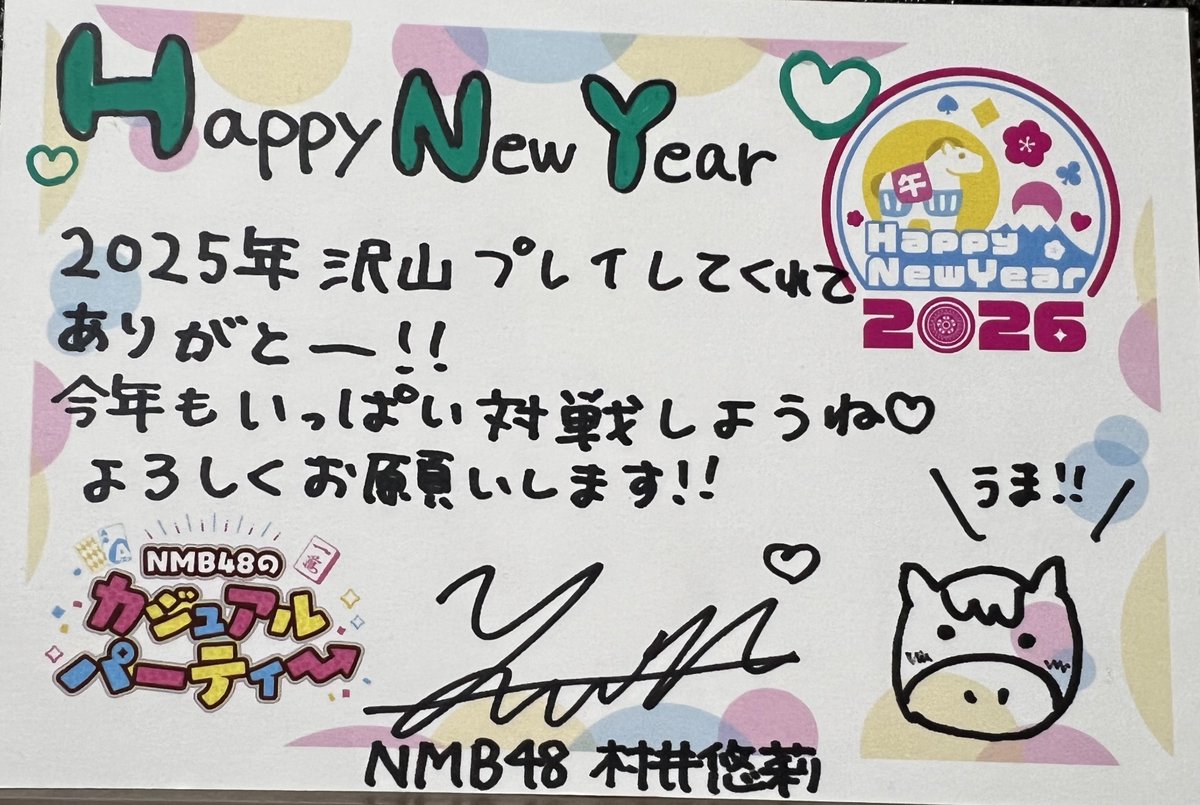 Happy New Year
午
Happy
NewYear
2026
2025年 沢山 プレイしてくれて
ありがとー!!
今年もいっぱい対戦しようね♡
よろしくお願いします!!
うま!!
A
一萬
NMB48の
カジュアル
パーティー
NMB48 村井悠莉